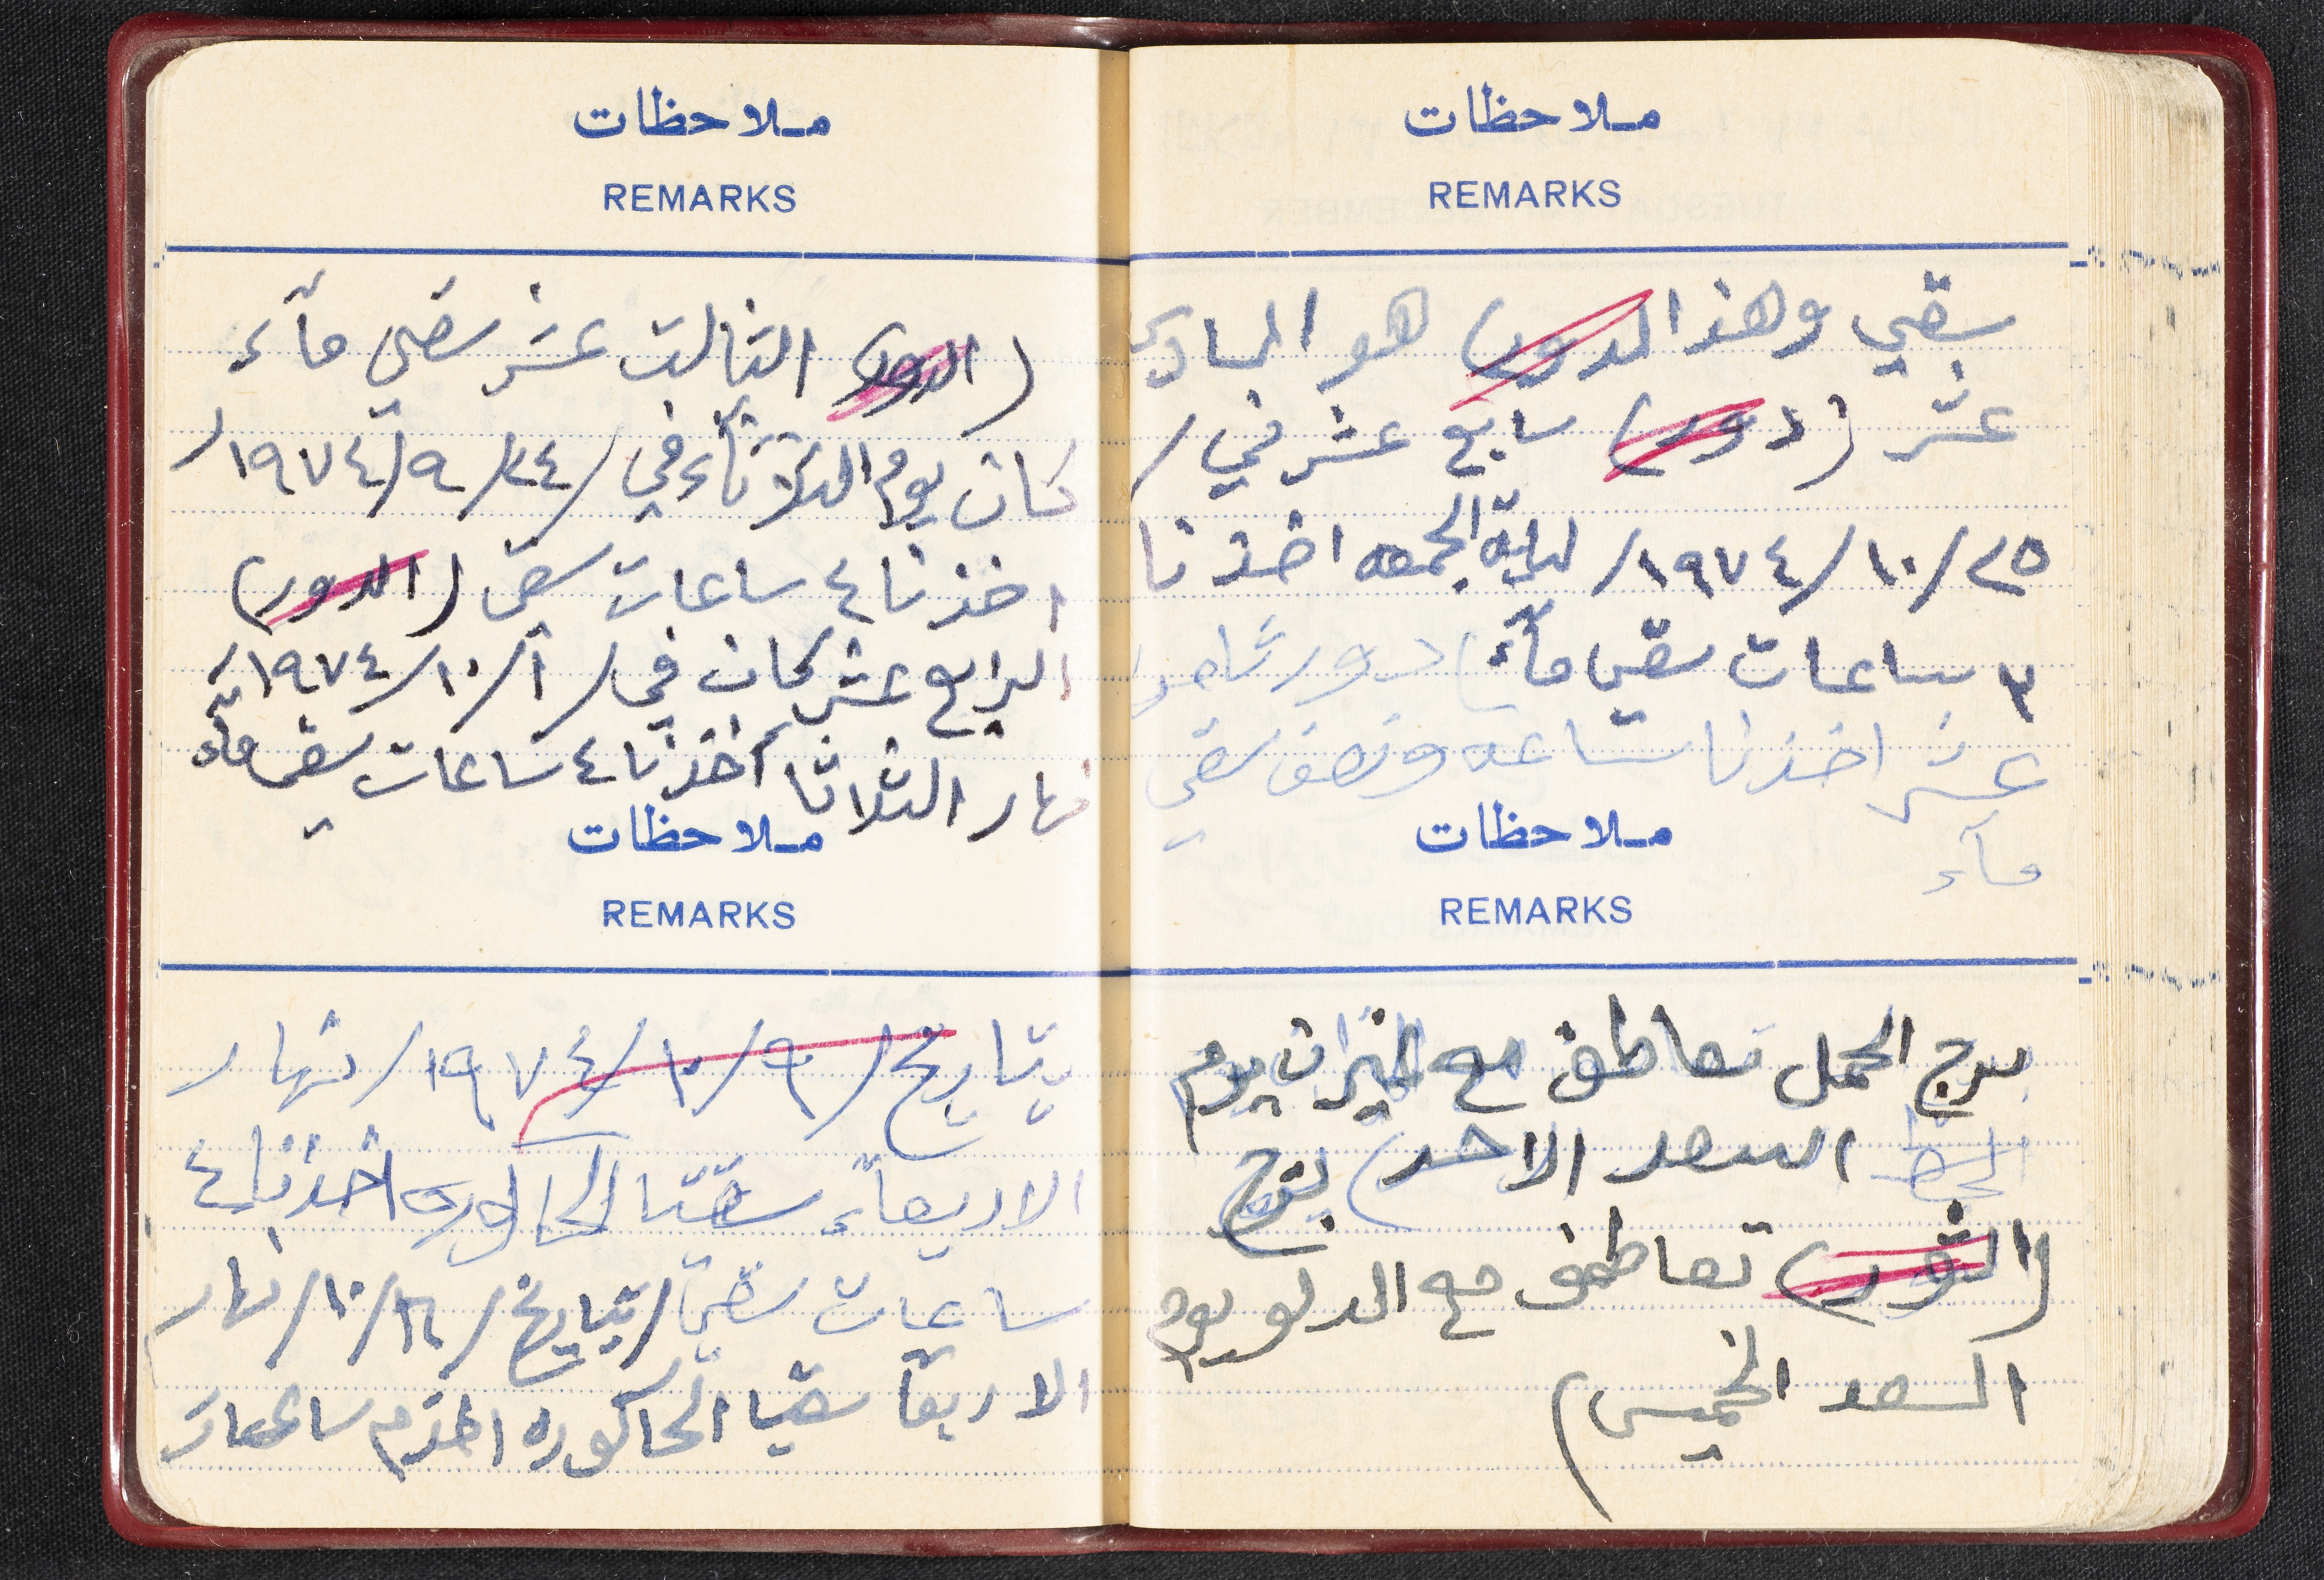 ملاحظات
REMARKS
(الدور) الثالث عشر سقي مآء
كان يوم الثلاثاء في /٢٤/٩/١٩٧٤/
اخذنا ٤ ساعات سقي (الدور)
الرابع عشر كان في /١/١٠/١٩٧٤/
نهار الثلاثا أخذنا ٤ ساعات سقي مآء
ملاحظات
REMARKS
بتاريخ /٩/١٠/١٩٧٤/ نهار
الاربعآء سقينا الحاكوره اخذنا ٤
ساعات سقي /بتاريخ /١٦/١٠/ نهار
الاربعا سقينا الحاكوره ساعات
ملاحظات
REMARKS
سقي وهذا الدور) هو السادس
عشر (دور) سابع عشر في /
٢٥/١٠/١٩٧٤/ ليلة الجمعه اخذنا
٣ ساعات سقي مآء (دور ثامن
عشر اخذنا ساعه ونصف سقي
مآء
ملاحظات
REMARKS
برج الحمل تعاطف مع الميزان يوم
الحظ السعد الاحد) برج
(الثور) تعاطف مع الدلو يوم
السعد الخميس)